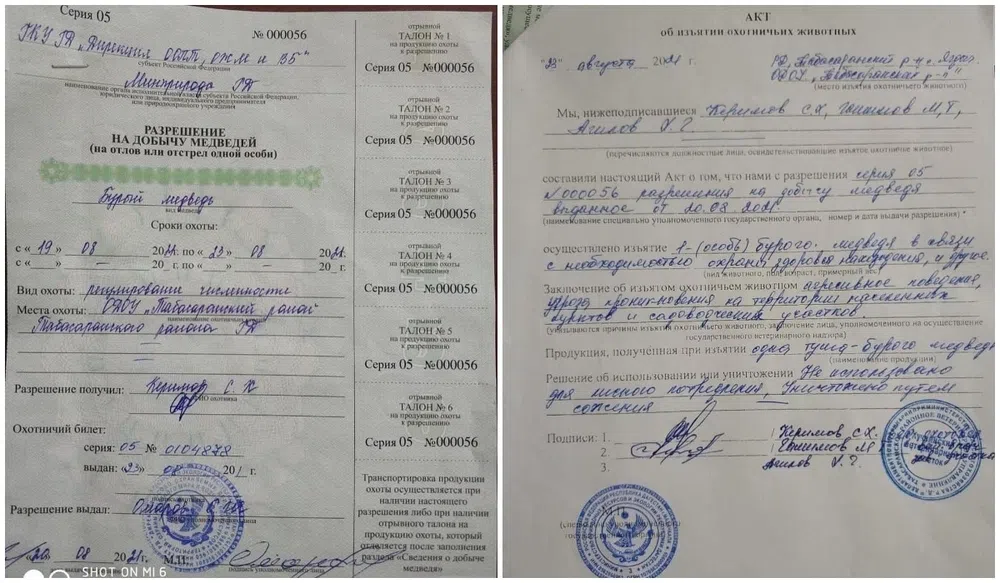 Серия 05
№ 000056
ГКУ РД „Дирекция ООПТ, ОЖМ и ВБ"
субъект Российской Федерации
Минприрода РД
наименование органа исполнительной власти субъекта Российской Федерации,
юридического лица, индивидуального предпринимателя
или природоохранного учреждения
РАЗРЕШЕНИЕ
НА ДОБЫЧУ МЕДВЕДЕЙ
(на отлов или отстрел одной особи)
Бурой медведь
вид медведя
Сроки охоты:
с « 19 » 08 2021 г. по « 23 » 08 2021 г.
с « — » — 20_ г. по « — » — 20_ г.
Вид охоты: регулирование численности
Места охоты: „Табасаранский район"
Табасаранского района РД
Разрешение получил: Керимов С. Х
ФИО охотника
Охотничий билет:
серия: 05 № 0104878
выдан: «23» 08 201 г.
Разрешение выдал: Омаров
«20» 08 2021г. М.П.
подпись уполномоченного лица
SHOT ON MI 6
отрывной
ТАЛОН № 1
на продукцию охоты
к разрешению
Серия 05 №000056
отрывной
ТАЛОН № 2
на продукцию охоты
к разрешению
Серия 05 №000056
отрывной
ТАЛОН № 3
на продукцию охоты
к разрешению
Серия 05 №000056
отрывной
ТАЛОН № 4
на продукцию охоты
к разрешению
Серия 05 №000056
отрывной
ТАЛОН № 5
на продукцию охоты
к разрешению
Серия 05 №000056
отрывной
ТАЛОН № 6
на продукцию охоты
к разрешению
Серия 05 №000056
Транспортировка продукции
охоты осуществляется при
наличии настоящего
разрешения либо при наличии
отрывного талона на
продукцию охоты, который
отделяется после заполнения
раздела «Сведения о добыче
медведя»
АКТ
об изъятии охотничьих животных
августа 2021 г. РД, Табасаранский р-н,
„Табасаранский р-н"
(место изъятия охотничьего животного)
Мы, нижеподписавшиеся Керимов С.Х, М.Т,
Агилов
(перечисляются должностные лица, освидетельствовавшие изъятое охотничье животное)
составили настоящий Акт о том, что нами с разрешения серия 05
№000056 разрешения на добычу медведя
выданное от 20.08.2021
(наименование специально уполномоченного государственного органа, номер и дата выдачи разрешения) *
осуществлено изъятие 1-(особь) бурого. медведя в связи
с необходимостью охраны здоровья населения, и другое.
(вид животного, пол, возраст, примерный вес)
Заключение об изъятом охотничьем животном поведения,
угроза проникновения на территории населенных
пунктов и садоводческих участков.
(указываются причины изъятия охотничьего животного, заключение лица, уполномоченного на осуществление
государственного ветеринарного надзора)
Продукция, полученная при изъятии одна туша-бурого медведя
(наименование продукции)
Решение об использовании или уничтожении Не использовано
для личного потребления, Уничтожено путем
сожжения
Подписи: 1. Керимов С.Х.
2.
3. Агилов